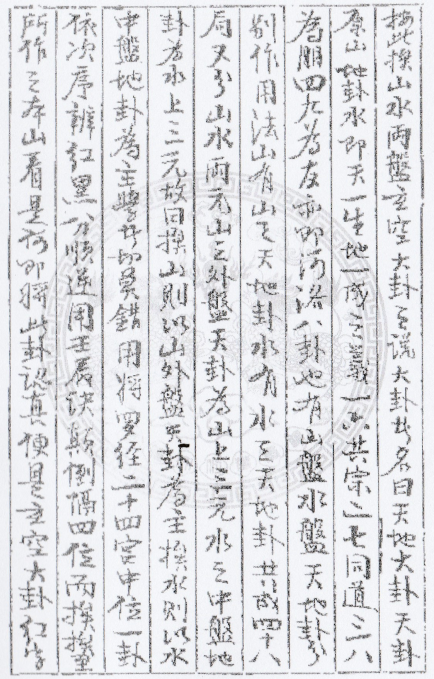 按此挨山水兩盤玄空大卦至說大卦者名曰天地大卦天卦
屬山地卦水即天一生地一成之義一六共宗二七同道三八
為朋四九為友亦即河洛八卦也有山盤水盤天地卦分
別作用法山有山之天地卦水有水之天地卦共成四十八
局又分山水兩元山之外盤天卦為山上三元水之中盤地
卦為水上三元故曰挨山則以山外盤卦為主挨水則以水
中盤地卦為主學者切莫錯用將羅經二十四宮中位一卦
依次序辨紅黑分順逆用壬辰訣顛倒隔四位而挨擬
所作之本山看是何即將此卦認真便是玄空大卦紅字